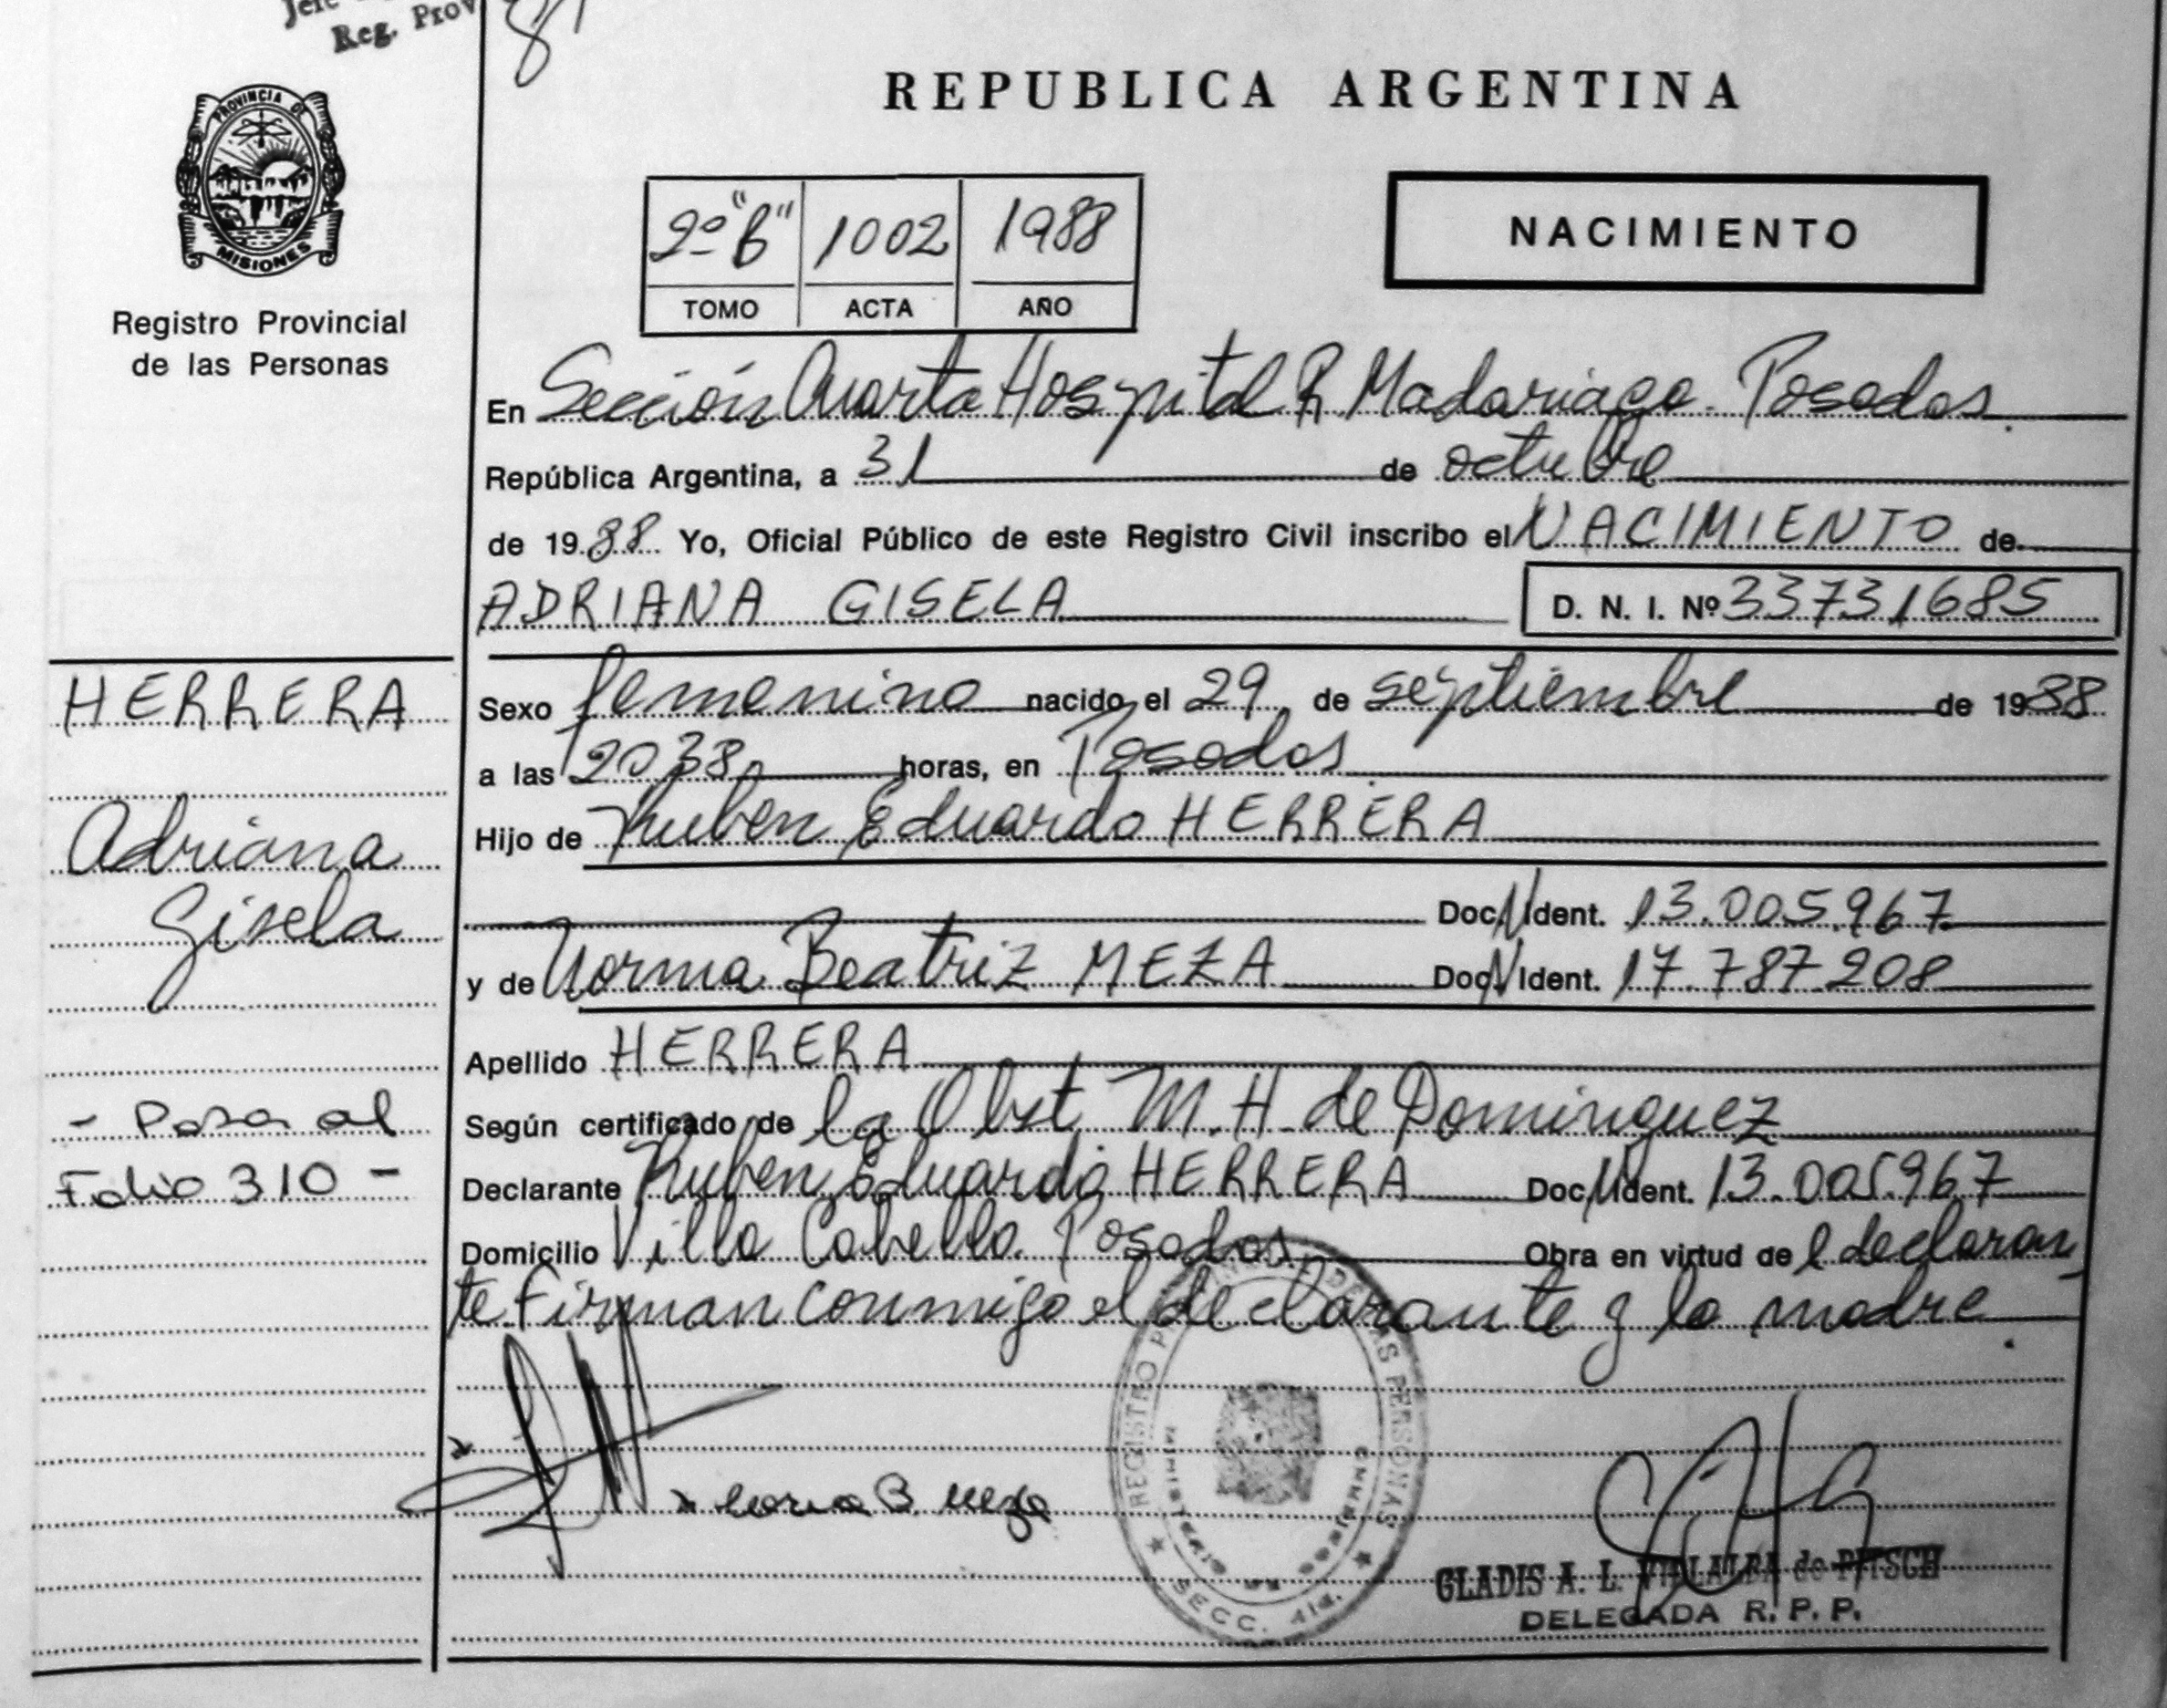 Reg. Prov
PROVINCIA DE
MISIONES
Registro Provincial
de las Personas
REPUBLICA ARGENTINA
2º "B" 1002 1988
TOMO ACTA AÑO
NACIMIENTO
En Sección Cuarta Hospital R Madariaga. Posadas.
República Argentina, a 31 de octubre
de 1988 Yo, Oficial Público de este Registro Civil inscribo el NACIMIENTO de
ADRIANA GISELA D. N. I. Nº 33731685
HERRERA
Adriana
Gisela
- Pasa al
Folio 310 -
Sexo femenino nacido el 29 de septiembre de 1988
a las 20 38 horas, en Posadas
Hijo de Ruben Eduardo HERRERA
Doc. Ident. 13.005.967
y de Norma Beatriz MEZA Doc. Ident. 17.787.208
Apellido HERRERA
Según certificado de la Obst M. H. de Dominguez
Declarante Ruben Eduardo HERRERA Doc. Ident. 13.005.967
Domicilio Villa Cabello. Posadas Obra en virtud de l declaran
te Firman conmigo el declarante y la madre.
B. Meza
REGISTRO DE LAS PERSONAS
MINISTERIO DE GOBIERNO
SECC. 4ta.
GLADIS A. L. VILLALBA de PITSCH
DELEGADA R. P. P.